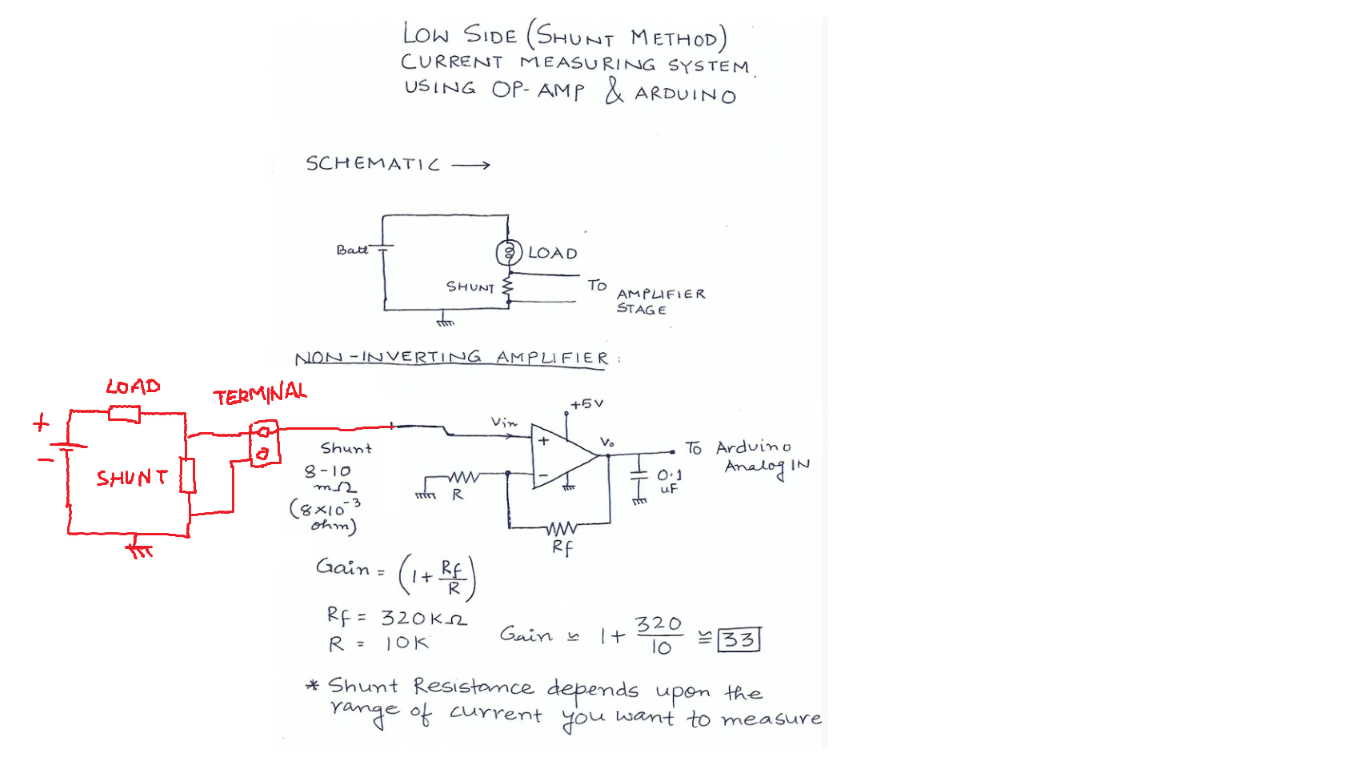 LOW SIDE (SHUNT METHOD)
CURRENT MEASURING SYSTEM
USING OP-AMP & ARDUINO
SCHEMATIC →
Batt
LOAD
SHUNT
TO AMPLIFIER
STAGE
NON-INVERTING AMPLIFIER:
LOAD
TERMINAL
+
-
SHUNT
Shunt
8-10
mΩ
(8×10⁻³
ohm)
Vin
+5V
+
-
Vo
To Arduino
Analog IN
0.1
uF
R
Rf
Gain = (1+ Rf/R)
Rf = 320KΩ
R = 10K
Gain ≃ 1+ 320/10 ≅ 33
* Shunt Resistance depends upon the
range of current you want to measure